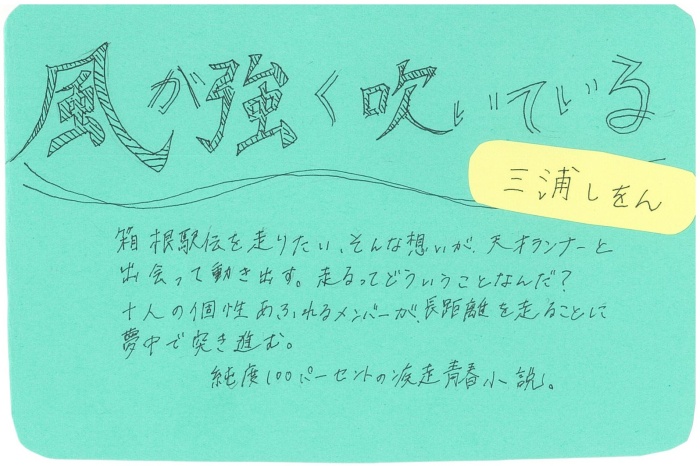 風が強く吹いている
三浦しをん
箱根駅伝を走りたい、そんな想いが、天才ランナーと
出会って動き出す。走るってどういうことなんだ？
十人の個性あふれるメンバーが、長距離を走ることに
夢中で突き進む。
純度100パーセントの疾走青春小説。